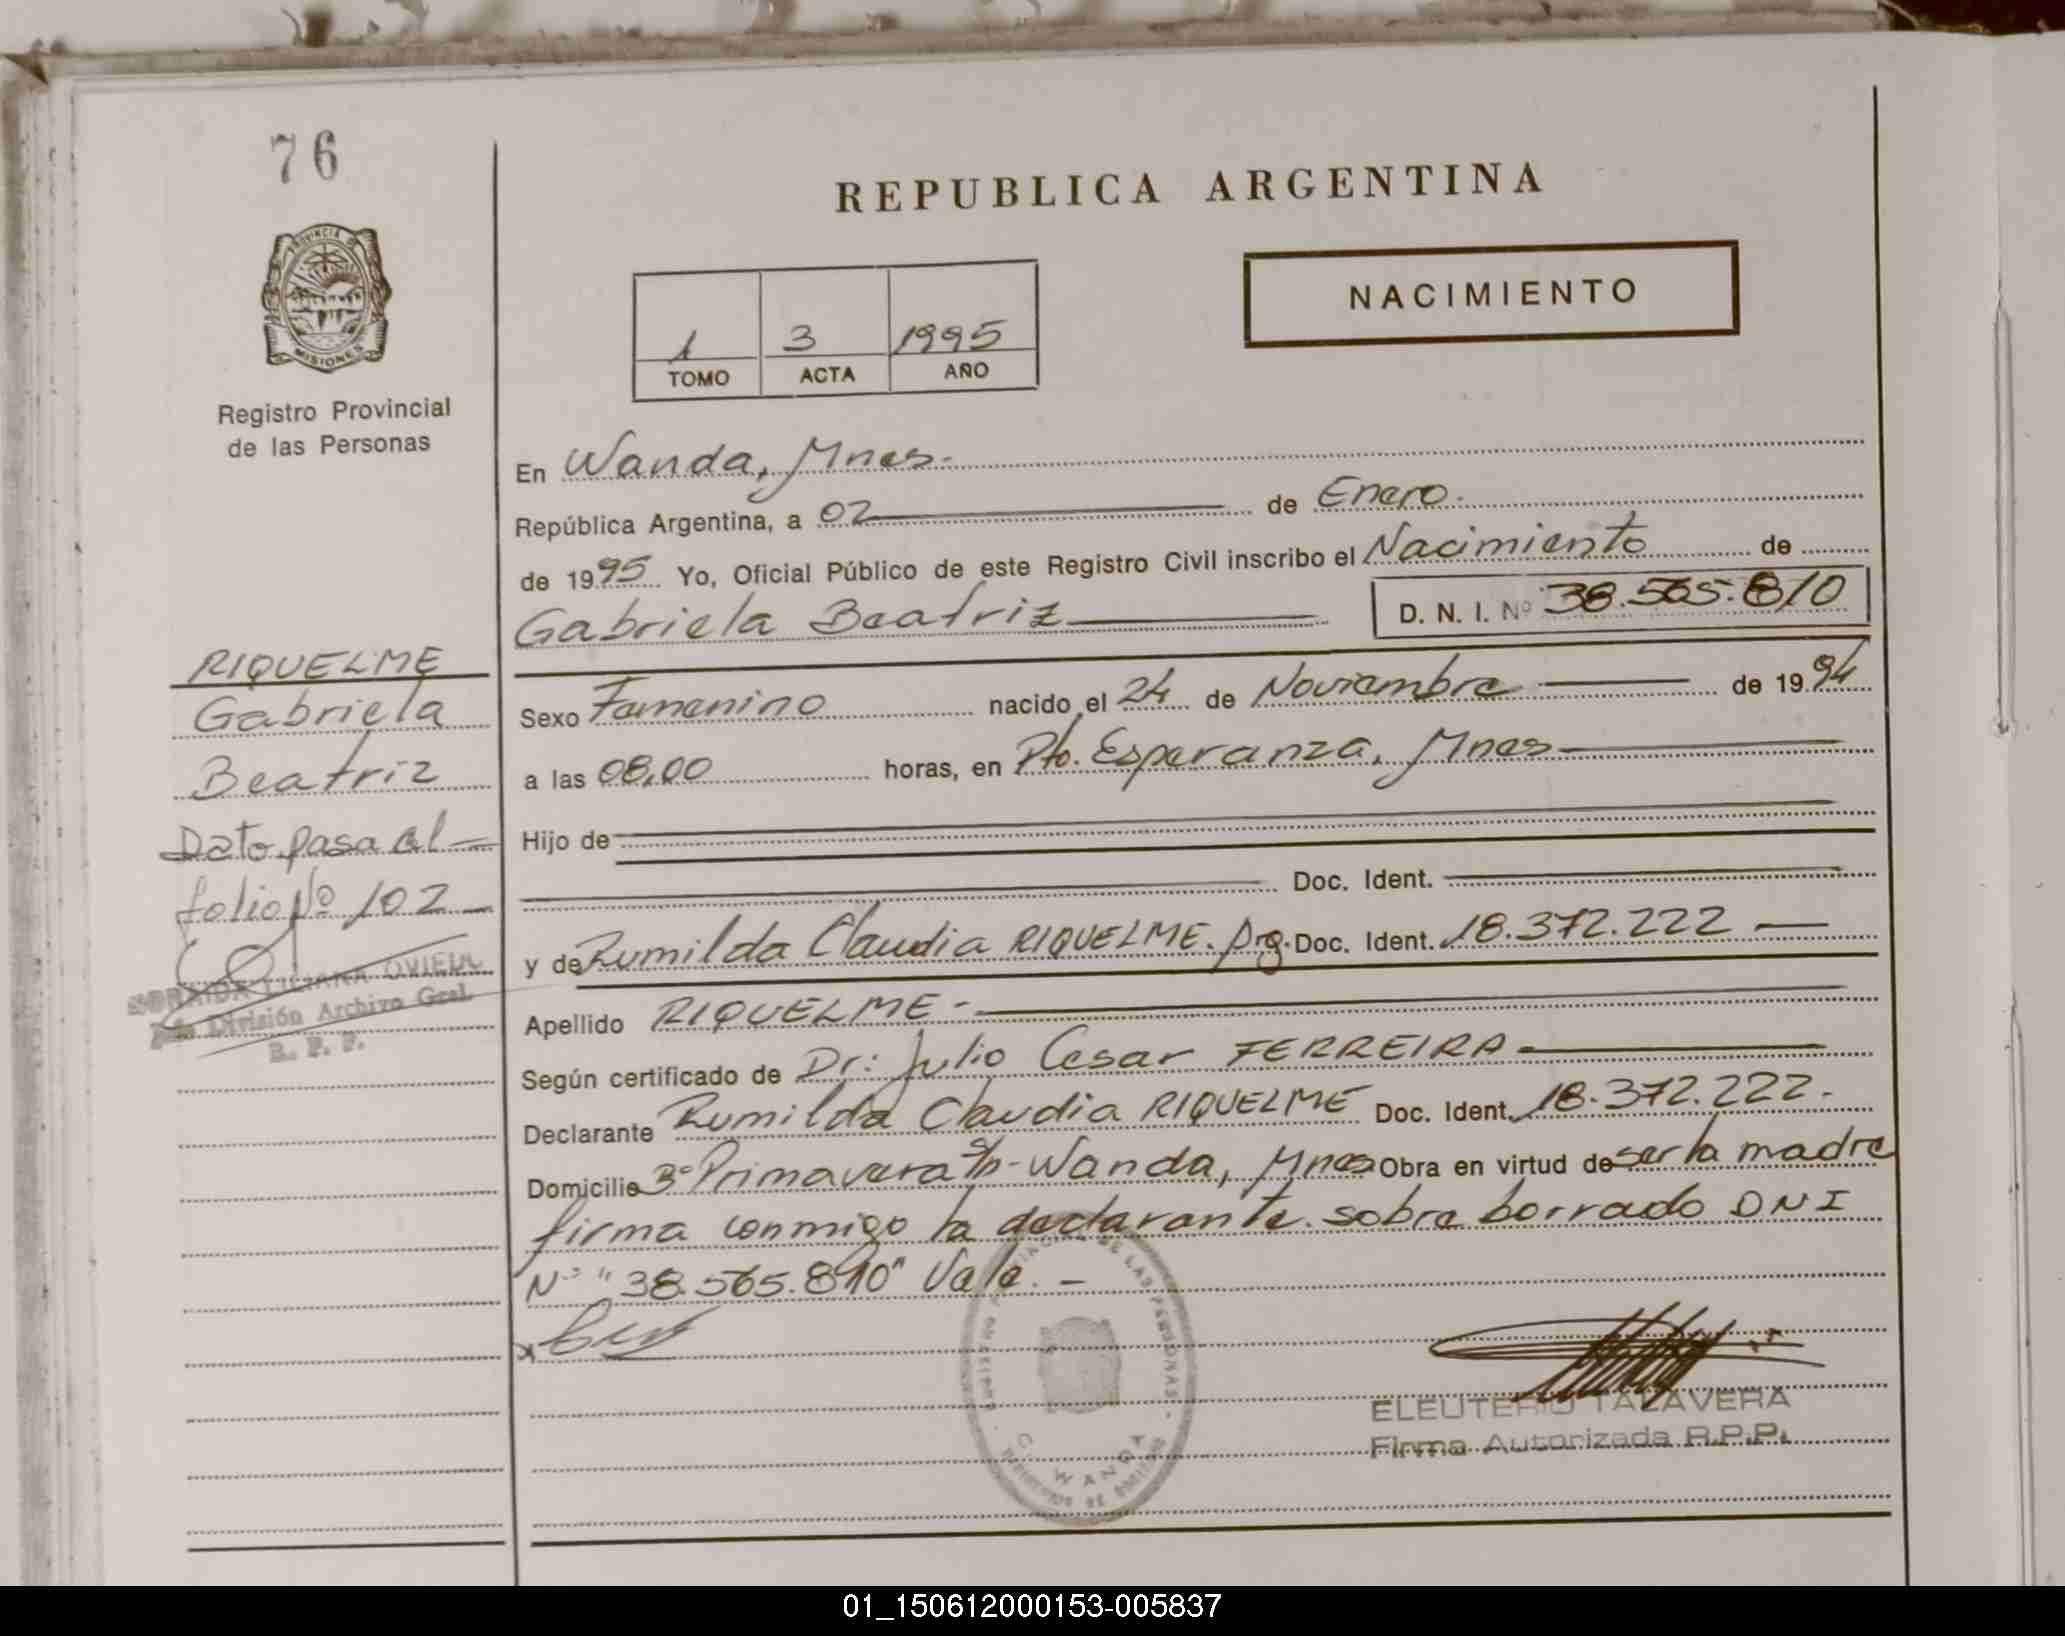 76
REPUBLICA ARGENTINA
NACIMIENTO
1 3 1995
TOMO ACTA AÑO
PROVINCIA DE
MISIONES
Registro Provincial
de las Personas
En Wanda, Mnes.
República Argentina, a 02 de Enero.
de 1995 Yo, Oficial Público de este Registro Civil inscribo el Nacimiento de
Gabriela Beatriz D. N. I. Nº 38.565.810
RIQUELME
Gabriela
Beatriz
Dato pasa al
folio Nº 102
LILIANA OVIEDO
División Archivo Gral.
R. P. P.
Sexo Femenino nacido el 24 de Noviembre de 1994
a las 08,00 horas, en Pto. Esperanza, Mnes
Hijo de
Doc. Ident.
y de Rumilda Claudia RIQUELME. Arg. Doc. Ident. 18.372.222
Apellido RIQUELME-
Según certificado de Dr: Julio Cesar FERREIRA
Declarante Rumilda Claudia RIQUELME Doc. Ident. 18.372.222.
Domicilio Bº Primavera s/n-Wanda, Mnes Obra en virtud de ser la madre
firma conmigo la declarante. sobre borrado DNI
Nº "38.565.810" Vale. -
DE LAS PERSONAS
WANDA
ELEUTERIO TALAVERA
Firma Autorizada R.P.P.
01_150612000153-005837